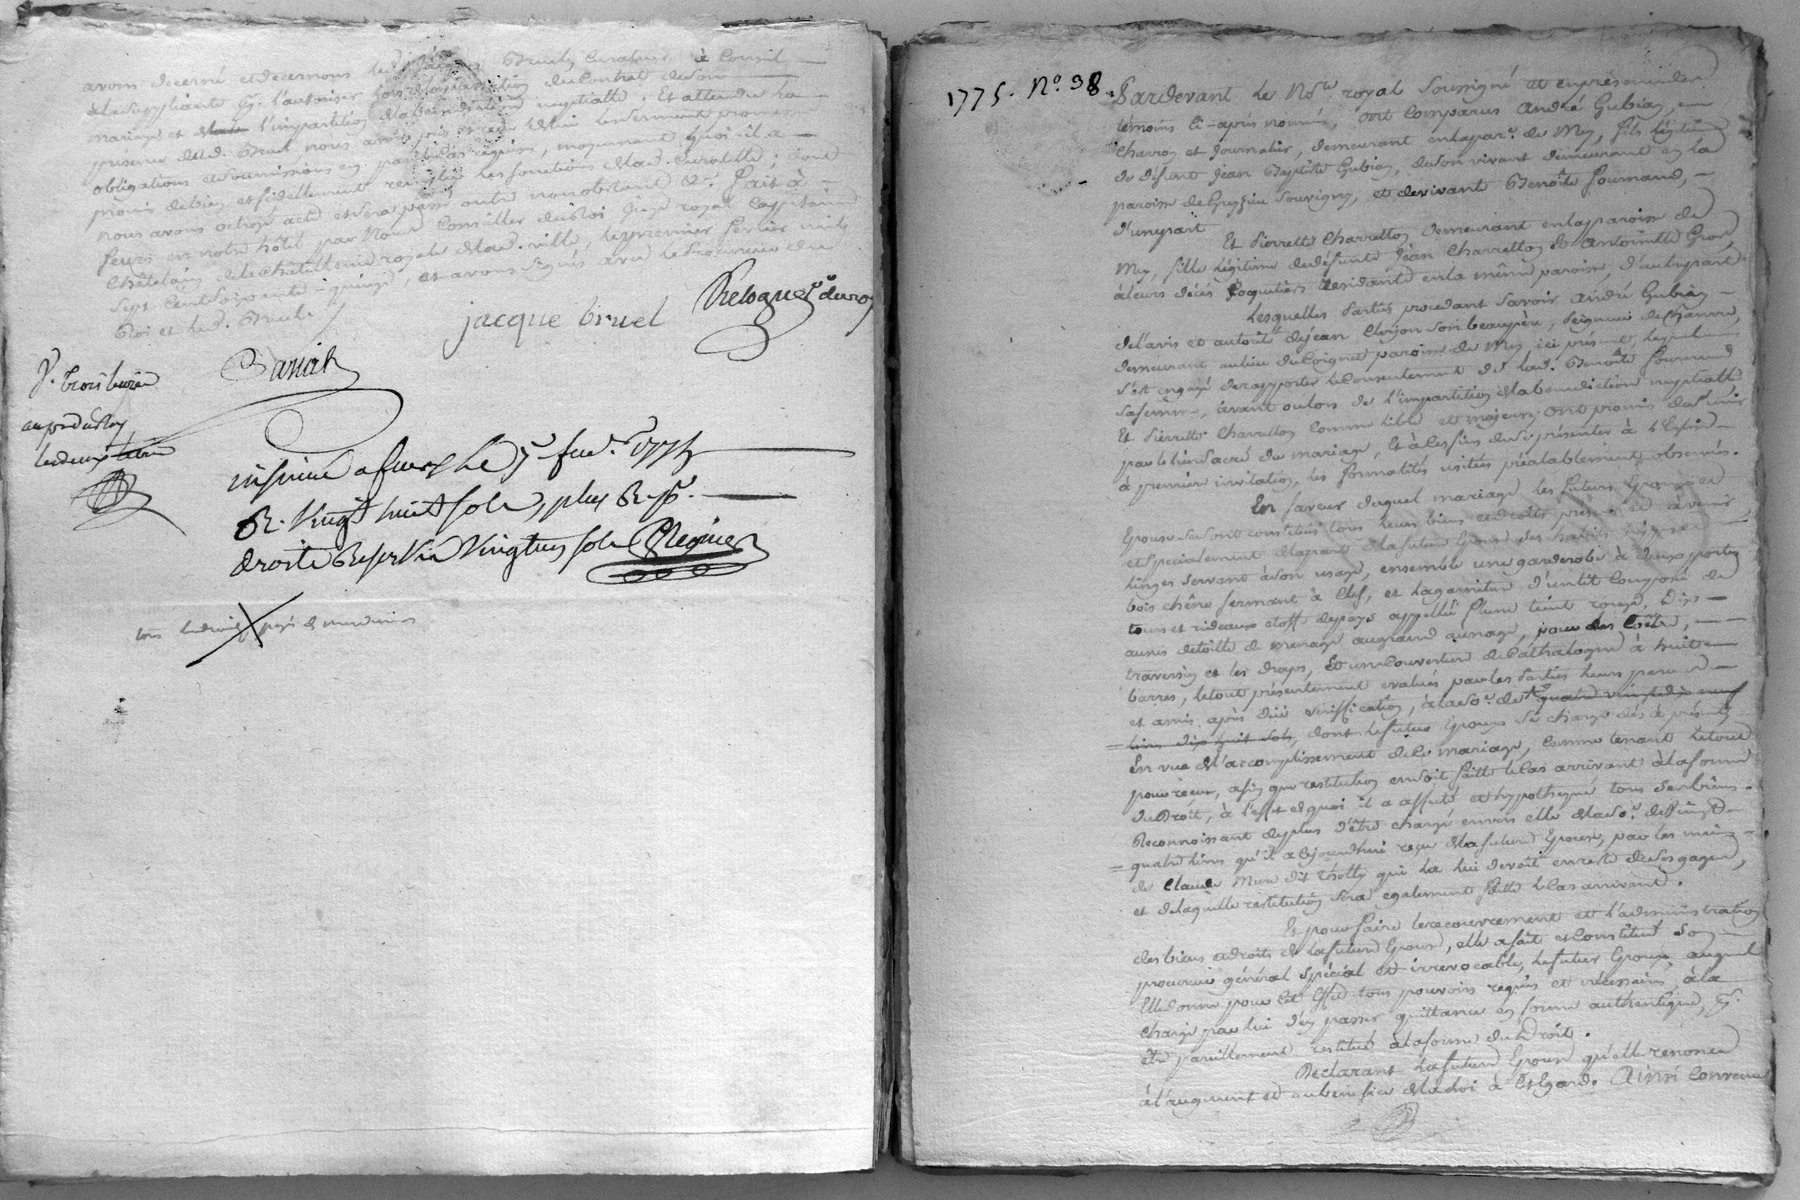 avons decerné et decernons led. Bruel Curateur à Conseil
à la suppliante &. l'autoriser lors de la passation du Contrat de son
mariage et l'impartition de la benediction nuptialle. Et attendu la
présence dud. d. Bruel nous avons pris et reçu de lui le serment promesses
obligations et soumissions en pareil cas requises, moyennant quoi il a
promis de bien et fidellement remplir les fonctions de lad. Curatelle; dont
nous avons octroyé acte et sera passé outre nonobstant &a. Fait à
feurs en notre hôtel par Nous Conseiller du Roi Juge royal Cappitaine
Châtelain de la Châtellenie royale de lad. ville, le premier fevrier mil
sept cent soixante-quinze, et avons signé avec le Procureur du
Roi et led. d. Bruel.
jacque bruel
Barrieu
insinué a feurs le fev. 1775
R. Vingt huit sols, plus
droits Reservés Vingt un sols
tous les droits payés
1775. No. 38.
Pardevant le Nore. royal soussigné et en présence des
témoins ci-après nommés, ont comparus André Gubian,
charron et journalier, demeurant en la par. de Mey, fils légitime
de défunt Jean Baptiste Gubian, de son vivant demeurant en la
paroisse de Grezieu Souvigny, et de vivante Benoîte Fournand,
d'une part
Et Pierrette Charretton demeurant en la paroisse de
Mey, fille légitime de défunts Jean Charretton & Antoinette Gros,
à leurs décès résidants en la même paroisse, d'autre part
Lesquelles Parties procedant savoir André Gubian
de l'avis et autorité de jean son beaupère, Peigneur de chanvre,
demeurant au lieu du Coignet paroisse de Mey ici présent, lequel
s'est engagé de rapporter le consentement de lad. Benoîte Fournand
sa femme, avant ou lors de l'impartition de la benediction nuptialle
Et Pierrette Charretton comme libre et majeure; ont promis de s'unir
par le lien sacré du mariage, et à ces fins de se présenter à l'Eglise
à premiere invitation, les formalités usitées préalablement observées.
En faveur duquel mariage les futurs Epoux et
Epouse se sont constitués tous leurs biens et droits présens et à venir
et spécialement de la part de la future Epouse ses habits
linges servant à son usage, ensemble une garderobe à deux portes
bois chêne fermant à clef, et la garniture d'un lit composé de
tours et rideaux etoffe du pays appellée teint rouge, dix
aunes de toille de menage au grand aunage,
traversin et les draps, et une couverture de Cathalogne à huit
barres, le tout présentement evalué par les Parties leurs parens
et amis après due veriffication, à la so. de quatre vingt dix neuf
livres dix huit sols, dont le futur Epoux se charge dès à présent
en vue de l'accomplissement de ce mariage, comme tenant le tout
pour reçu, afin que restitution en soit faitte le cas arrivant à la forme
du Droit, à l'effet de quoi il a affecté et hypothequé tous ses biens.
Reconnoissant de plus d'être chargé envers elle de la so. de vingt
quatre livres qu'il a cejourdhui reçu de la future Epouse, par les mains
de Claude Mure dit qui la lui devoit en reste de ses gages,
et de laquelle restitution sera egalement faitte le cas arrivant.
Et pour faire le recouvrement et l'administration
des biens et droits de la future Epouse, elle a fait et constitué son
procureur général spécial et irrevocable, le futur Epoux, auquel
elle donne pour cet effet tous pouvoirs requis et nécessaires, à la
charge par lui d'en passer quittance en forme authentique, &.
être pareillement restitué à la forme du Droit.
Déclarant la future Epouse qu'elle renonce
à l'augment et au bénéfice de la loi à cet egard. Ainsi convenu